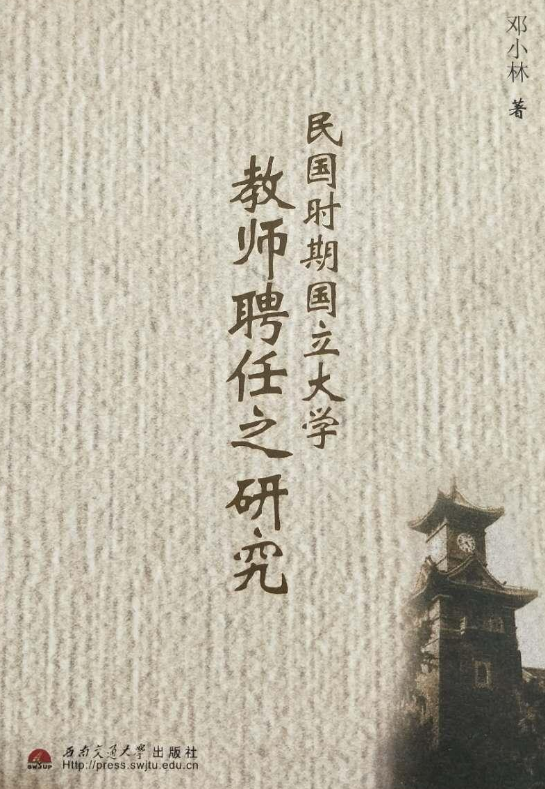 邓小林 著
民国时期国立大学
教师聘任之研究
SWJUP
西南交通大学出版社
Http://press.swjtu.edu.cn